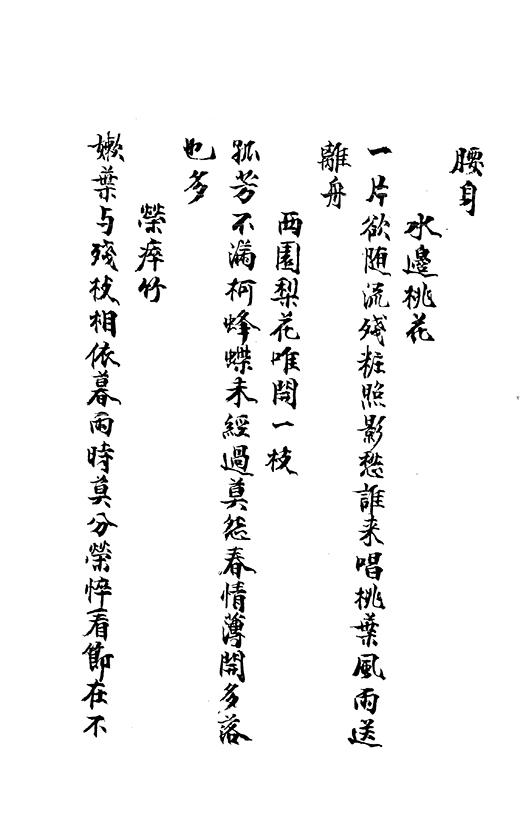 腰身
水邊桃花
一片欲随流殘粧照影愁誰来唱桃葉風雨送
離舟
西園梨花唯開一枝
孤芳不滿柯蜂蝶未經過莫怨春情薄開多落
也多
榮瘁竹
嫩葉与殘枝相依暮雨時莫分榮悴看節在不